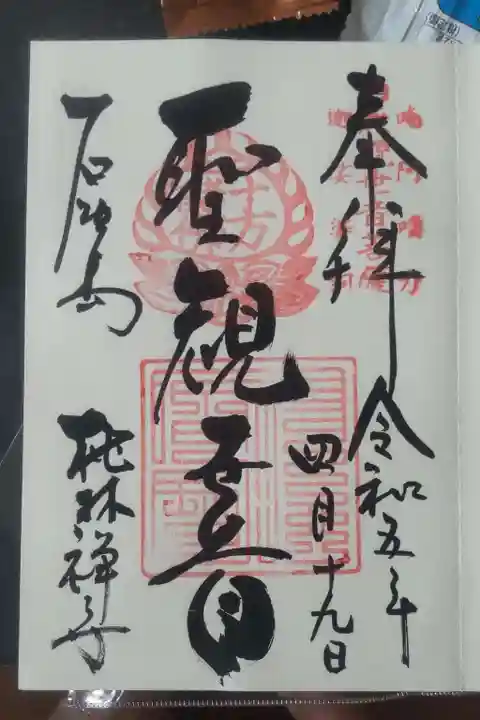 奉拝 令和五年
四月十九日
聖観音
石垣島 桃林禅寺